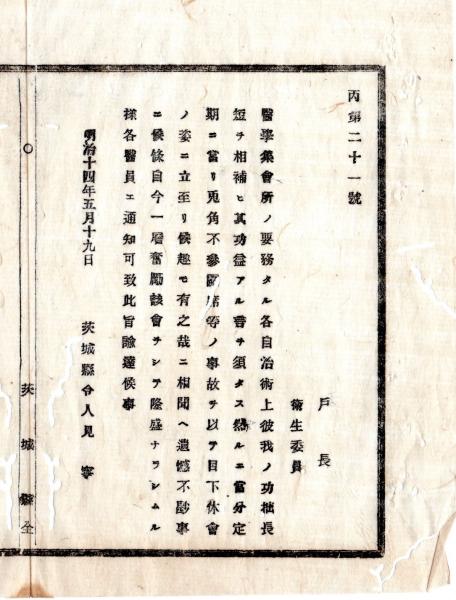 丙第二十一號
戸長
衛生委員
醫學集會所ノ要務タル各自治術上彼我ノ功拙長
短ヲ相補ヒ其功益アル言ヲ須タス然ルニ當分定
期ニ當リ兎角不參闕席等ノ事故ヲ以テ目下休會
ノ姿ニ立至リ候趣モ有之哉ニ相聞ヘ遺憾不尠事
ニ候條自今一層奮勵該會ヲシテ隆盛ナラシムル
樣各醫員エ通知可致此旨諭達候事
明治十四年五月十九日 茨城縣令人見寧
茨城縣